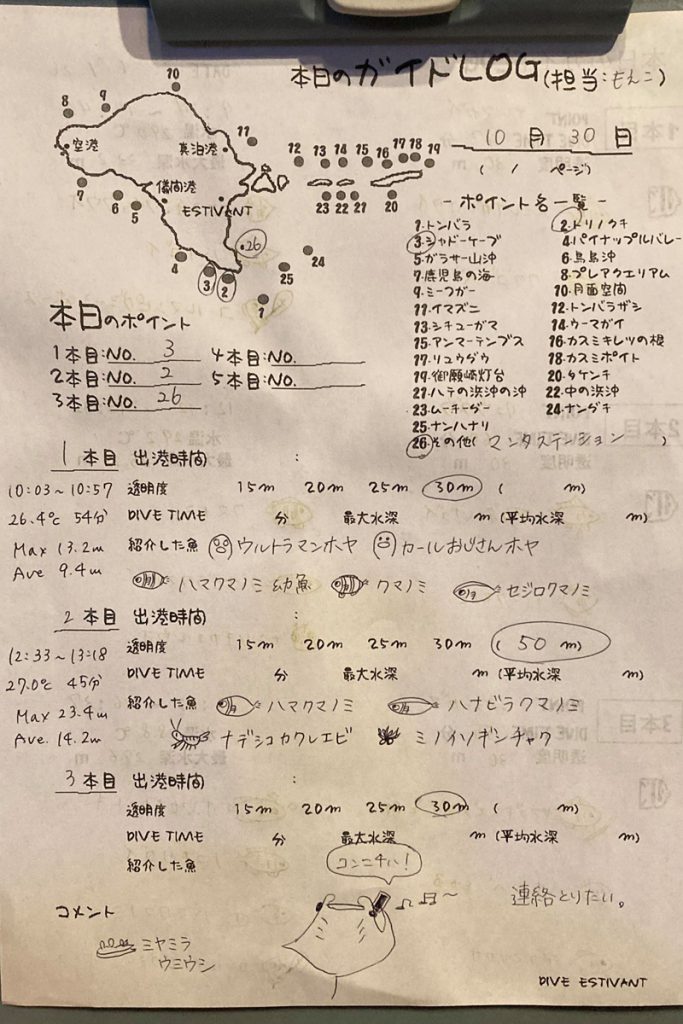 本日のガイドLOG(担当:もんこ)
10月30日
( 1 ページ)
10
9
8
空港
真泊港
11
12 13 14 15 16 17 18 19
7
6 5
儀間港
ESTIVANT
23 22 21
20
26
4
3
2
25
24
1
- ポイント名一覧 -
1.トンバラ 2.トリノクチ
3.シャドーケーブ 4.パイナップルバレー
5.ガラサー山沖 6.鳥島沖
7.鹿児島の海 8.プレアクエリアム
9.ミーフガー 10.月面空間
11.イマズニ 12.トンバラザシ
13.シチューガマ 14.ウーマガイ
15.アンマーテンプス 16.カスミキレツの根
17.リュウグウ 18.カスミポイト
19.御願崎灯台 20.タケンチ
21.ハテの浜沖の沖 22.中の浜沖
23.ムーチーダー 24.ナンダチ
25.ナンハナリ
26.その他( マンタステンション )
本日のポイント
1本目:NO. 3 4本目:NO.
2本目:NO. 2 5本目:NO.
3本目:NO. 26
1本目 出港時間 :
10:03~10:57 透明度 15m 20m 25m 30m ( m)
26.4℃ 54分 DIVE TIME 分 最大水深 m (平均水深 m)
Max 13.2m 紹介した魚 ウルトラマンホヤ カールおじさんホヤ
Ave 9.4m
ハマクマノミ 幼魚 クマノミ セジロクマノミ
2本目 出港時間 :
12:33~13:18 透明度 15m 20m 25m 30m ( 50 m)
27.0℃ 45分 DIVE TIME 分 最大水深 m (平均水深 m)
Max 23.4m 紹介した魚 ハマクマノミ ハナビラクマノミ
Ave. 14.2m ナデシコカクレエビ ミノイソギンチャク
3本目 出港時間 :
透明度 15m 20m 25m 30m ( m)
DIVE TIME 分 最大水深 m (平均水深 m)
紹介した魚
コンニチハ!
連絡とりたい。
コメント
ミヤミラ
ウミウシ
DIVE ESTIVANT